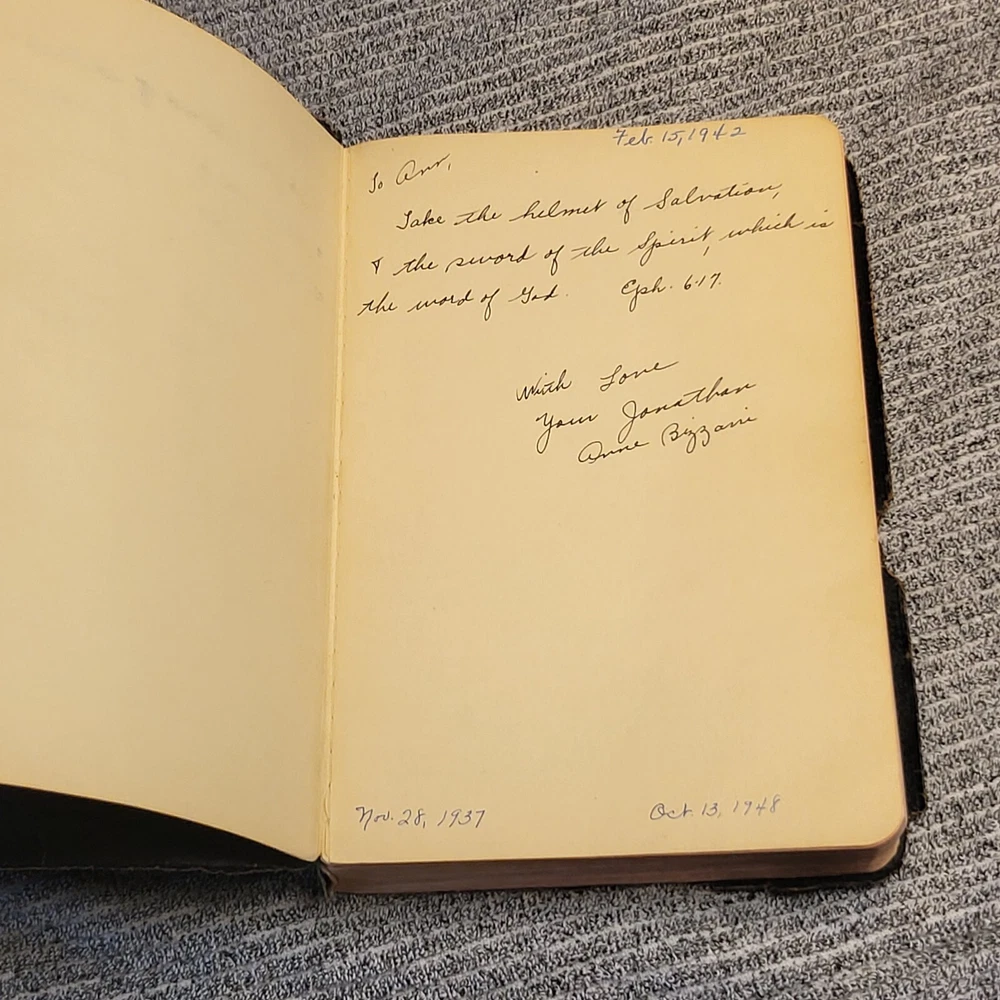 Feb. 15, 1942
To Ann,
Take the helmet of Salvation,
& the sword of the Spirit, which is
the word of God. Eph. 6:17.
With Love
Your Jonathan
Anne Bizzarri
Nov. 28, 1937
Oct. 13, 1948